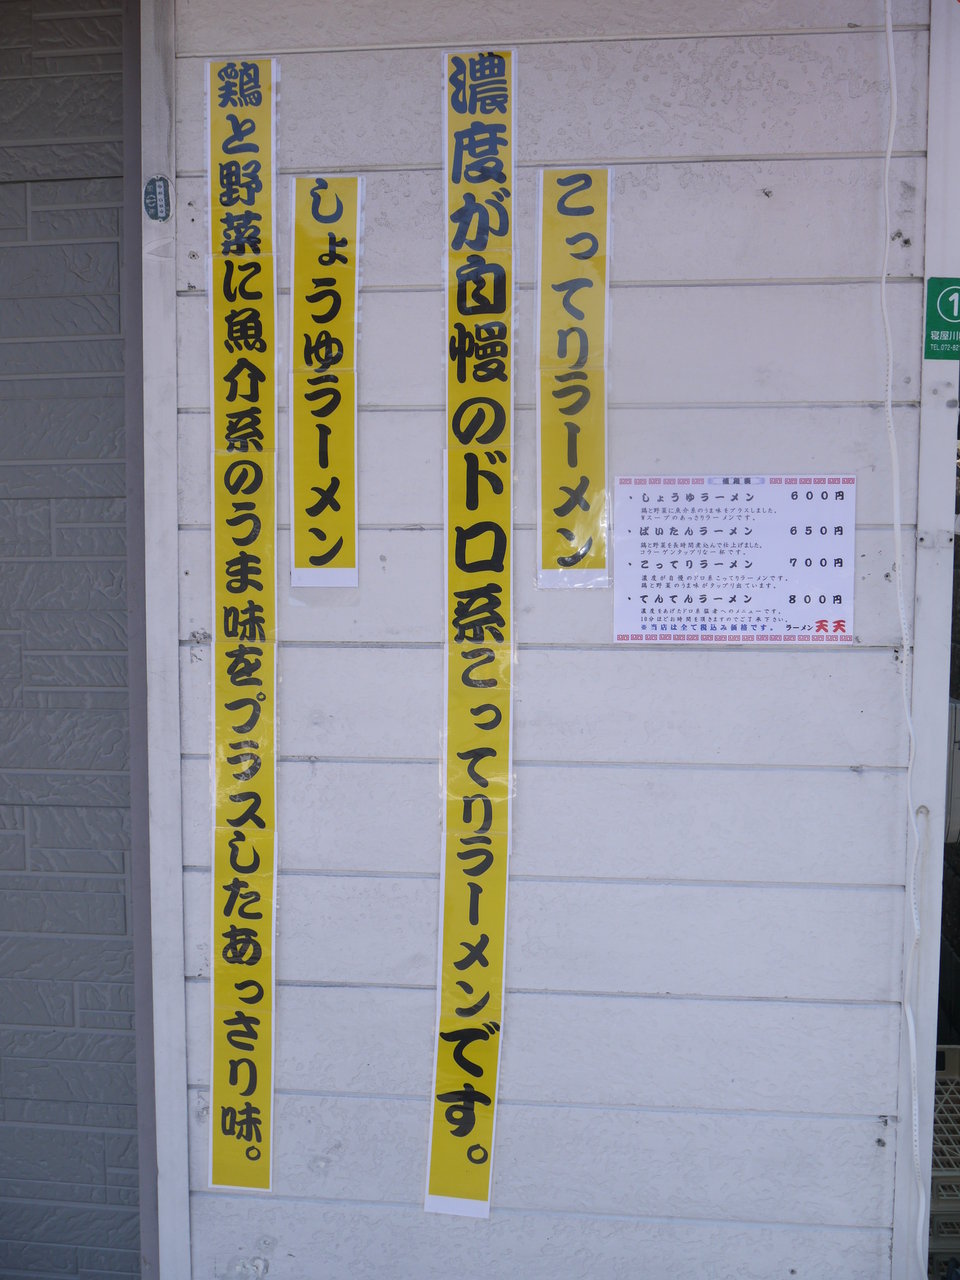 こってりラーメン
濃度が自慢のドロ系こってりラーメンです。
しょうゆラーメン
鶏と野菜に魚介系のうま味をプラスしたあっさり味。
・しょうゆラーメン 600円
鶏と野菜に魚介系のうま味をプラスしました。
Wスープのあっさりラーメンです。
・ぱいたんラーメン 650円
鶏と野菜を長時間煮込んで仕上げました。
コラーゲンタップリな一杯です。
・こってりラーメン 700円
濃度が自慢のドロ系こってりラーメンです。
鶏と野菜のうま味がタップリ出ています。
・てんてんラーメン 800円
濃度をあげたドロ系猛者へのメニューです。
10分ほどお時間を頂きますのでご了承下さい。
※当店は全て税込み価格です。 ラーメン天天
1
寝屋川
TEL.072-82